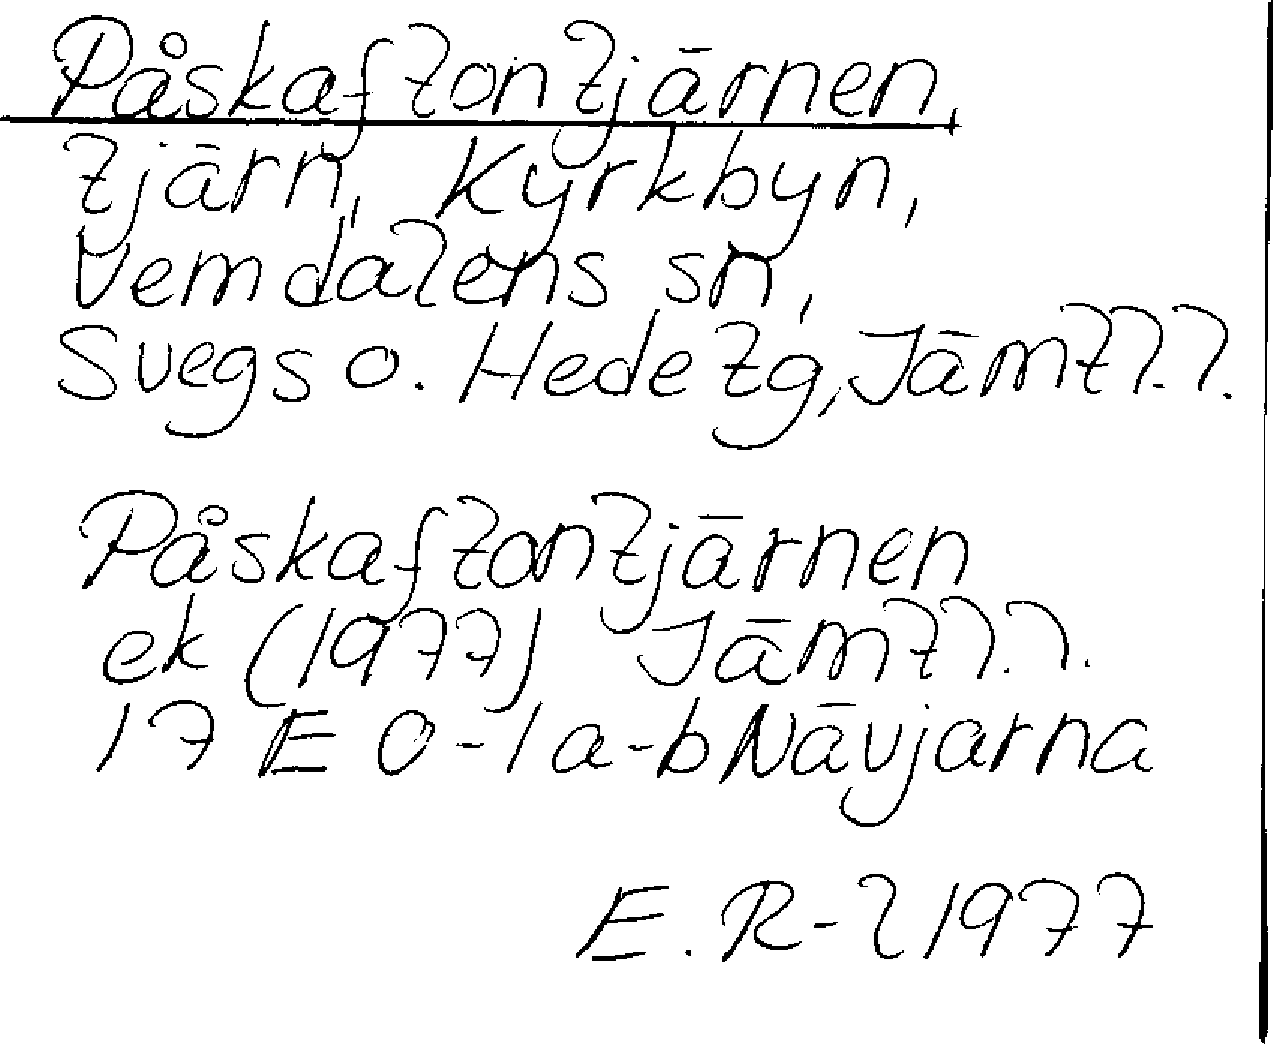 Påskaftontjärnen,
tjärn, Kyrkbyn,
Vemdalens sn,
Svegs o. Hede tg, Jämtl.l.
Påskaftontjärnen
ek (1977) Jämtl.l.
17 E 0-1 a-b Nävjarna
E. R-l 1977